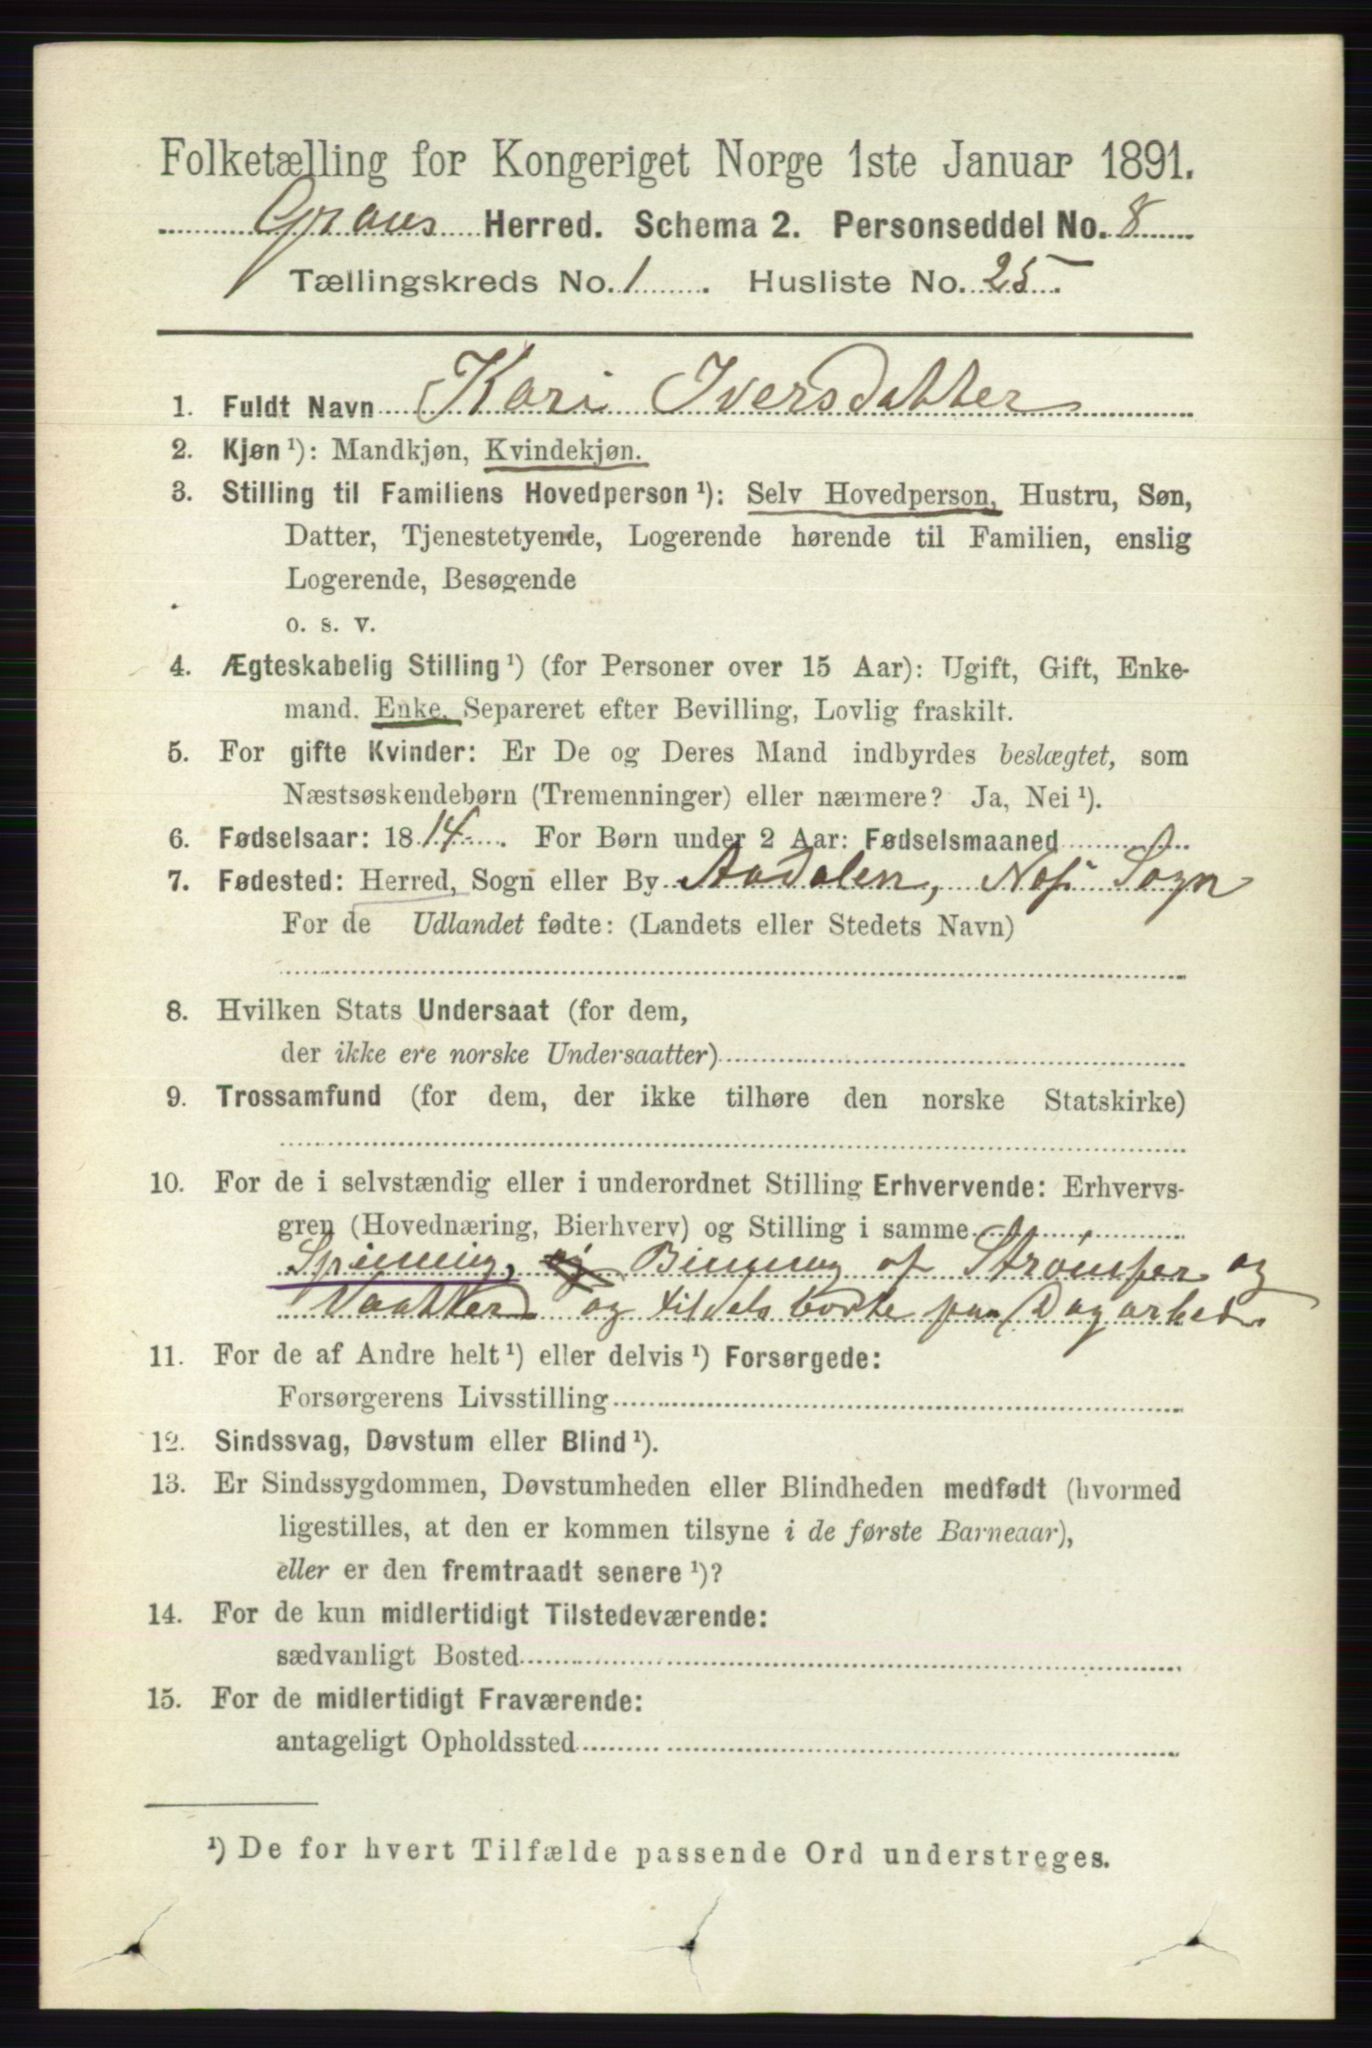 Folketælling for Kongeriget Norge 1ste Januar 1891.
Grans Herred. Schema 2. Personseddel No. 8
Tællingskreds No. 1. Husliste No. 25.
1. Fuldt Navn Kari Iversdatter
2. Kjøn ¹): Mandkjøn, Kvindekjøn.
3. Stilling til Familiens Hovedperson ¹): Selv Hovedperson, Hustru, Søn,
Datter, Tjenestetyende, Logerende hørende til Familien, enslig
Logerende, Besøgende
o. s. v.
4. Ægteskabelig Stilling ¹) (for Personer over 15 Aar): Ugift, Gift, Enke-
mand. Enke, Separeret efter Bevilling, Lovlig fraskilt.
5. For gifte Kvinder: Er De og Deres Mand indbyrdes beslægtet, som
Næstsøskendebørn (Tremenninger) eller nærmere? Ja, Nei ¹).
6. Fødselsaar: 1814. For Børn under 2 Aar: Fødselsmaaned
7. Fødested: Herred, Sogn eller By Aadalen, Næs Sogn
For de Udlandet fødte: (Landets eller Stedets Navn)
8. Hvilken Stats Undersaat (for dem,
der ikke ere norske Undersaatter)
9. Trossamfund (for dem, der ikke tilhøre den norske Statskirke)
10. For de i selvstændig eller i underordnet Stilling Erhvervende: Erhvervs-
gren (Hovednæring, Bierhverv) og Stilling i samme
Spinning, og Binding af Strømper og
Vaatter og tildels borte paa Dagarbed.
11. For de af Andre helt ¹) eller delvis ¹) Forsørgede:
Forsørgerens Livsstilling
12. Sindssvag, Døvstum eller Blind ¹).
13. Er Sindssygdommen, Døvstumheden eller Blindheden medfødt (hvormed
ligestilles, at den er kommen tilsyne i de første Barneaar),
eller er den fremtraadt senere ¹)?
14. For de kun midlertidigt Tilstedeværende:
sædvanligt Bosted
15. For de midlertidigt Fraværende:
antageligt Opholdssted
¹) De for hvert Tilfælde passende Ord understreges.